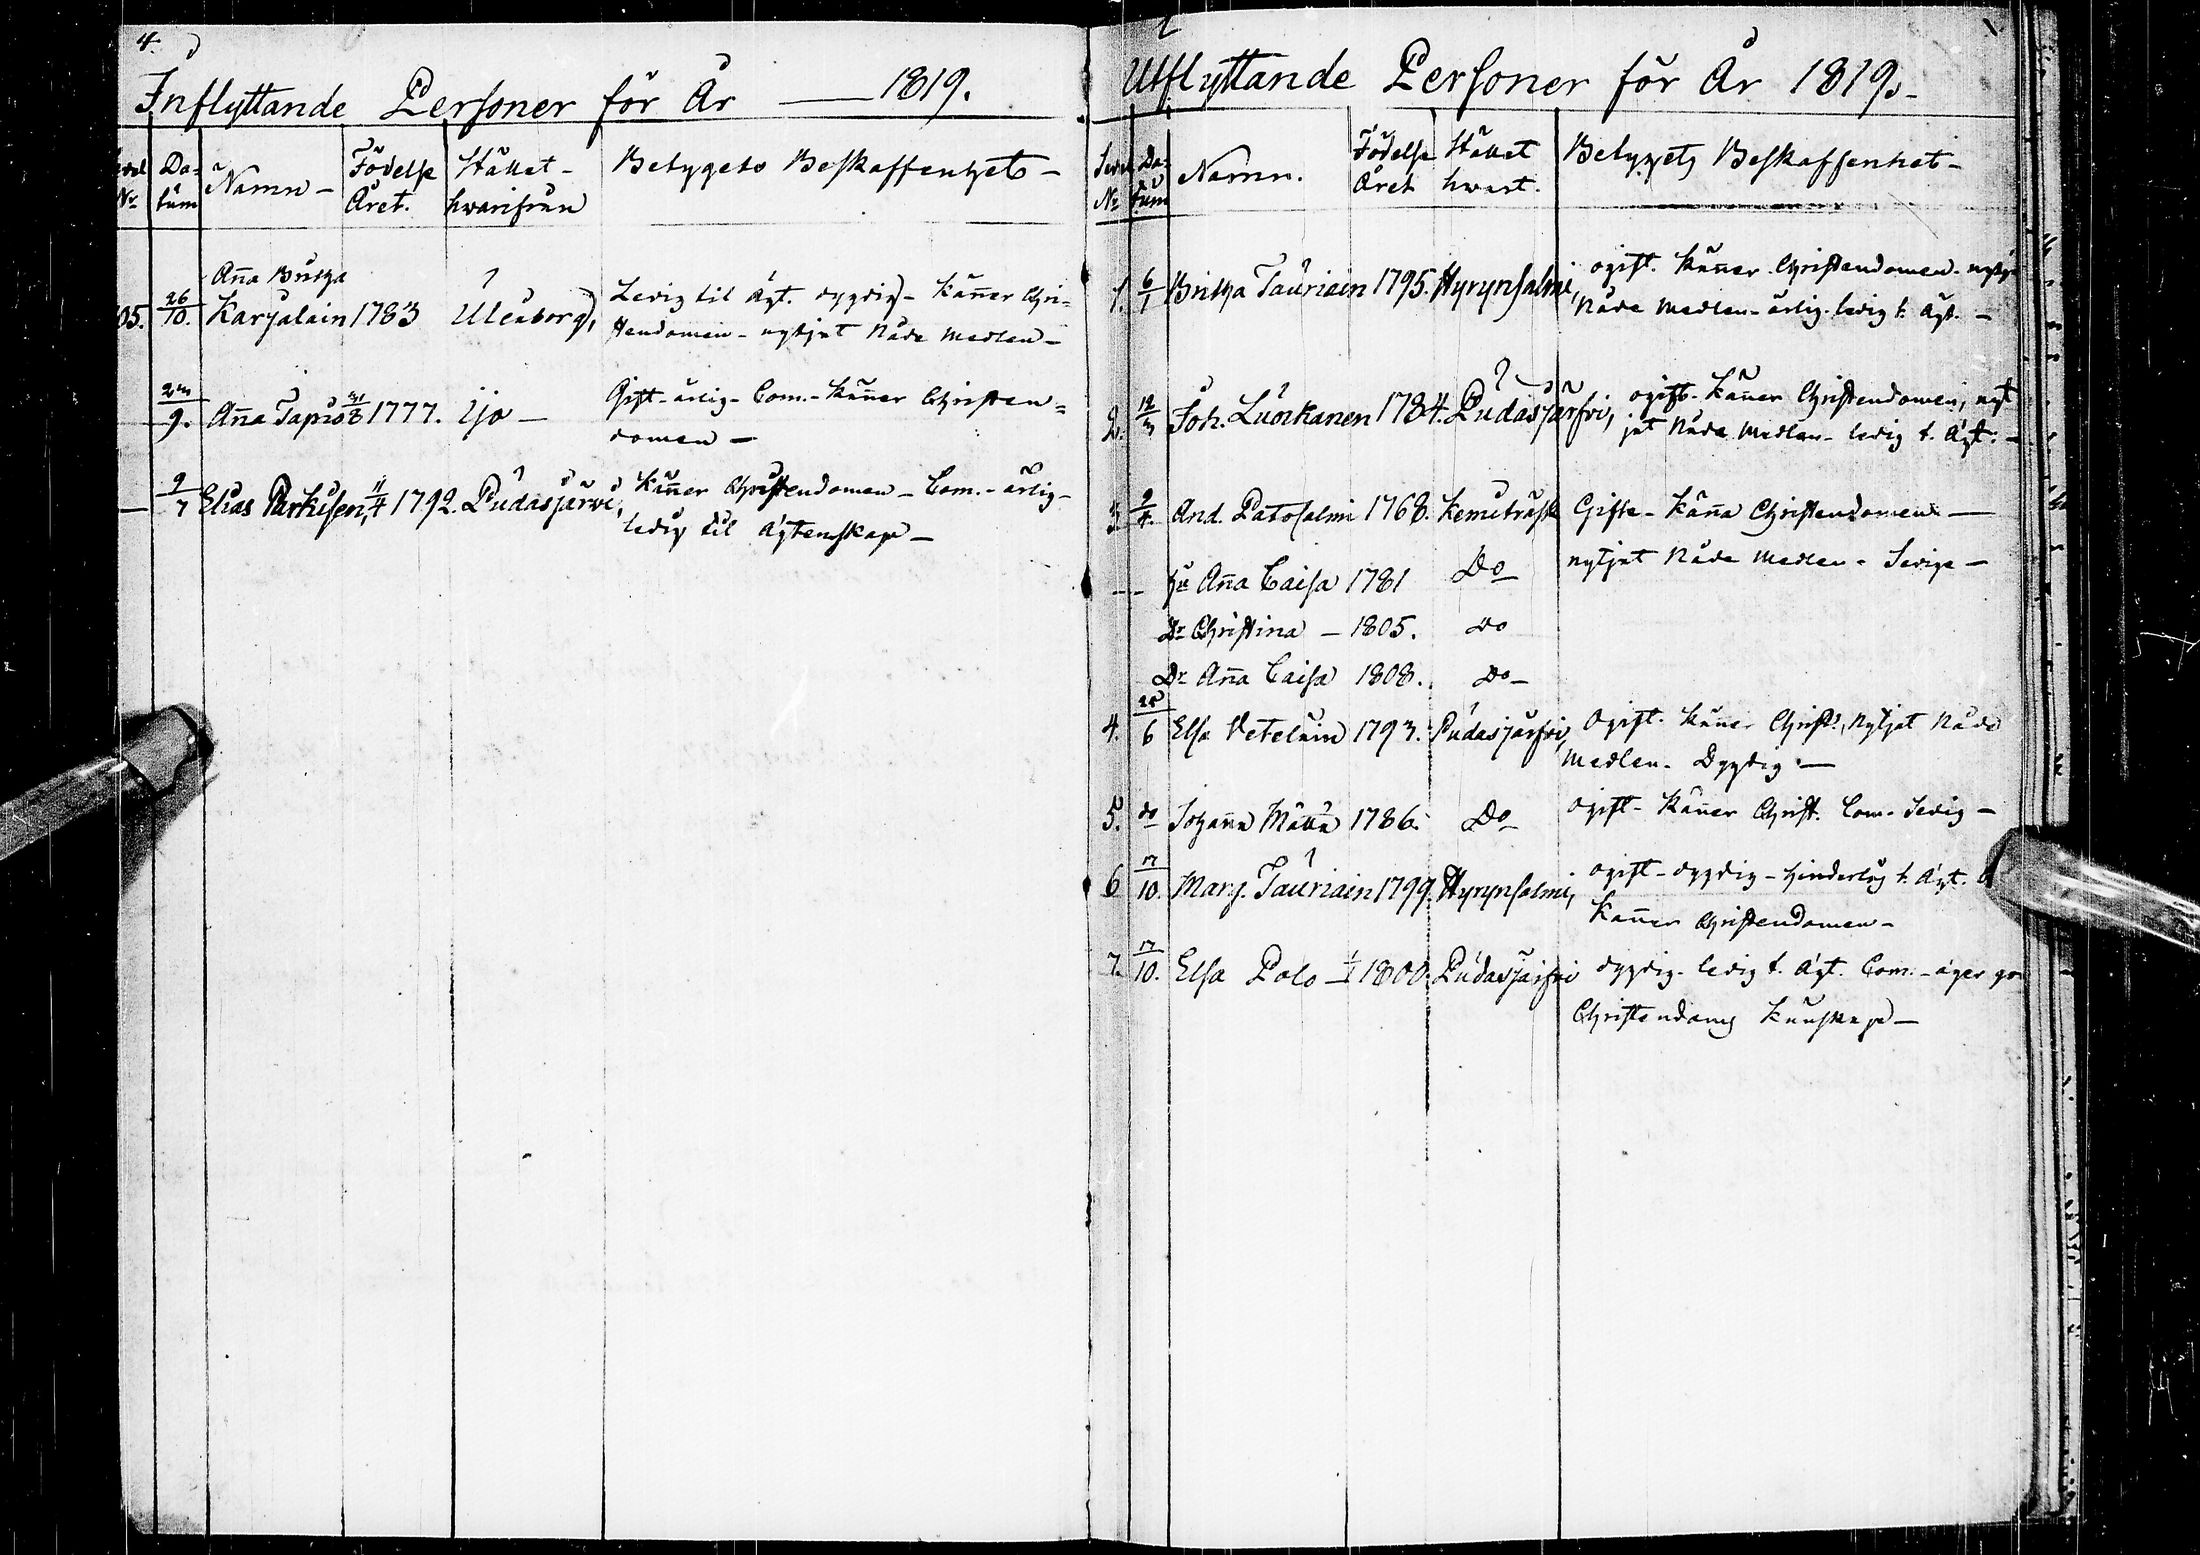 4.
Inflyttande Personer för År — 1819.
Da- Födelse Stället -
Namn - Betygets Beskaffenhets -
No tum Året. hwarifrån
Anna Britha
05. 26/10. Karjalain 1783 Uleåborg, Ledig til Ägt. dygdig - Känner Chri-
stendomen - nytjat Nåde Medlen -
9. Anna Tapio 31/8 1777. Ijo - Gift - ärlig - Com. - Känner Christen=
domen -
— 9/7 Elias Parkisen, 11/4 1792. Pudasjärwi, Känner Christendomen - Com. - ärlig -
ledig til Ägtenskap -
Utflyttande Personer för År 1819.
Da- Födelse Stället
Namn. Betygets Beskaffenhet -
No tum Året hwart.
1. 6/1 Britha Tauriain 1795. Hyrynsalmi, ogift. Känner Christendomen -
Nåde Medlen - ärlig - ledig t. Ägt. -
2. 12/3 Joh. Luokanen 1784. Pudasjärfvi, ogift - Känner Christendomen, nyt
jat Nåde Medlen - ledig t. Ägt. -
3 9/4. And. Patosalmi 1768. Kemiträsk Gifte - Känna Christendomen -
nytjat Nåde Medlen -
— hu Anna Caisa 1781 Do
Dr Christina - 1805. Do
Dr Anna Caisa 1808. Do -
4. 25/6 Elsa Vetelain 1793. Pudasjärfvi, Ogift. Känner Christ. Nytjat Nåde
Medlen - Dygdig -
5. do Johanna 1786. Do ogift - Känner Christ. Com.
6 17/10. Marg. Tauriain 1799. Hyrynsalmi, ogift - dygdig - hinderlös t. Ägt.
Känner Christendomen -
7. 17/10. Elsa Polo 1800. Pudasjärfvi dygdig - ledig t. Ägt. Com. - äger
Christendoms Kunskap -